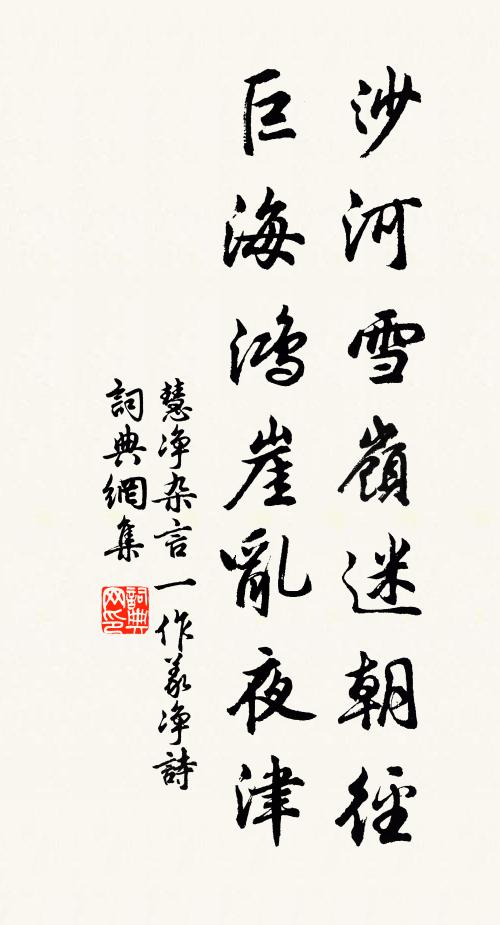 沙河雪嶺迷朝徑
巨海鴻崖亂夜津
慧净杂言一作義净詩
詞典網集
詞典网印